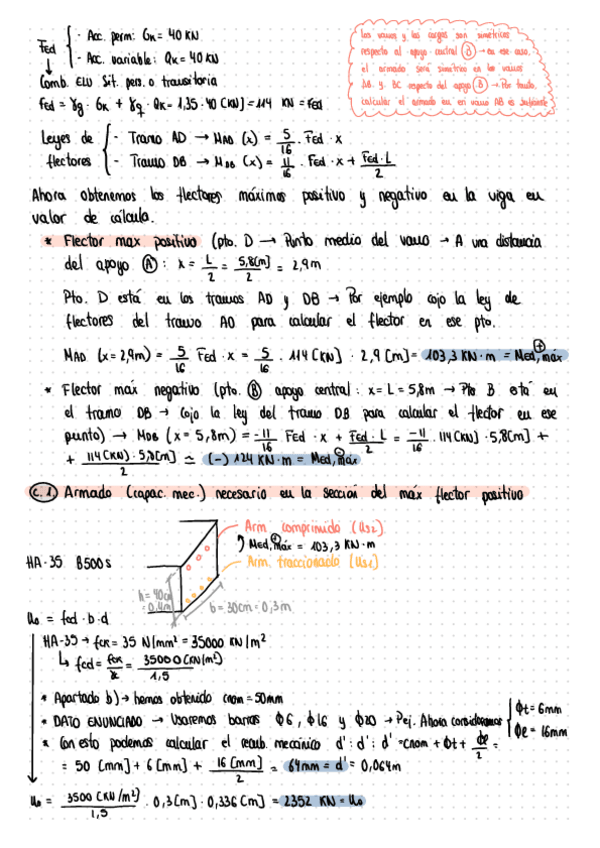 Acc. perm: Gk = 40 KN
Fed
Acc. variable: Qk = 40 KN
Comb. ELU Sit. pers. o transitoria
Fed = γg · Gk + γq · Qk = 1,35 · 40 [KN] = 114 KN = Fed
los vanos y las cargas son simétricos
respecto al apoyo central (B) → en ese caso,
el armado será simétrico en los vanos
AB y BC respecto del apoyo (B) → Por tanto,
calcular el armado en el vano AB es suficiente
Leyes de flectores
- Tramo AD → MAD (x) = 5/16 · Fed · x
- Tramo DB → MDB (x) = 11/16 · Fed · x + Fed · L/2
Ahora obtenemos los flectores máximos positivo y negativo en la viga en
valor de cálculo.
* Flector max positivo (pto. D → Punto medio del vano → A una distancia
del apoyo (A): x = L/2 = 5,8[m]/2 = 2,9m
Pto. D está en los tramos AD y DB → Por ejemplo cojo la ley de
flectores del tramo AD para calcular el flector en ese pto.
MAD (x = 2,9m) = 5/16 Fed · x = 5/16 · 114 [KN] · 2,9 [m] = 103,3 KN·m = Med, máx (+)
* Flector máx negativo (pto. (B) apoyo central: x = L = 5,8m → Pto B está en
el tramo DB → Cojo la ley del tramo DB para calcular el flector en ese
punto) → MDB (x = 5,8m) = -11/16 Fed · x + Fed · L/2 = -11/16 · 114 [KN] · 5,8[m] +
+ 114 [KN] · 5,8[m]/2 ≃ (-) 124 KN·m = Med, máx (-)
C.1) Armado (capac. mec.) necesario en la sección del máx flector positivo
Arm comprimida (Us2)
Med, máx (+) = 103,3 KN·m
Arm. traccionada (Us1)
HA-35 B500s
h = 40cm
= 0,4m
b = 30cm = 0,3m
Uo = fcd · b · d
HA-35 → fck = 35 N/mm² = 35000 KN/m²
↳ fcd = fck/γc = 35000 [KN/m²]/1,5
* Apartado b) → hemos obtenido cnom = 50mm
* DATO ENUNCIADO → Usaremos barras Φ6, Φ16 y Φ20 → Pej. Ahora consideramos
Φt = 6mm
Φl = 16mm
* Con esto podemos calcular el recub. mecánico d': d': d' = cnom + Φt + Φl/2 =
= 50 [mm] + 6 [mm] + 16 [mm]/2 = 64mm = d' = 0,064m
Uo = 3500 [KN/m²]/1,5 · 0,3 [m] · 0,336 [m] = 2352 KN = Uo